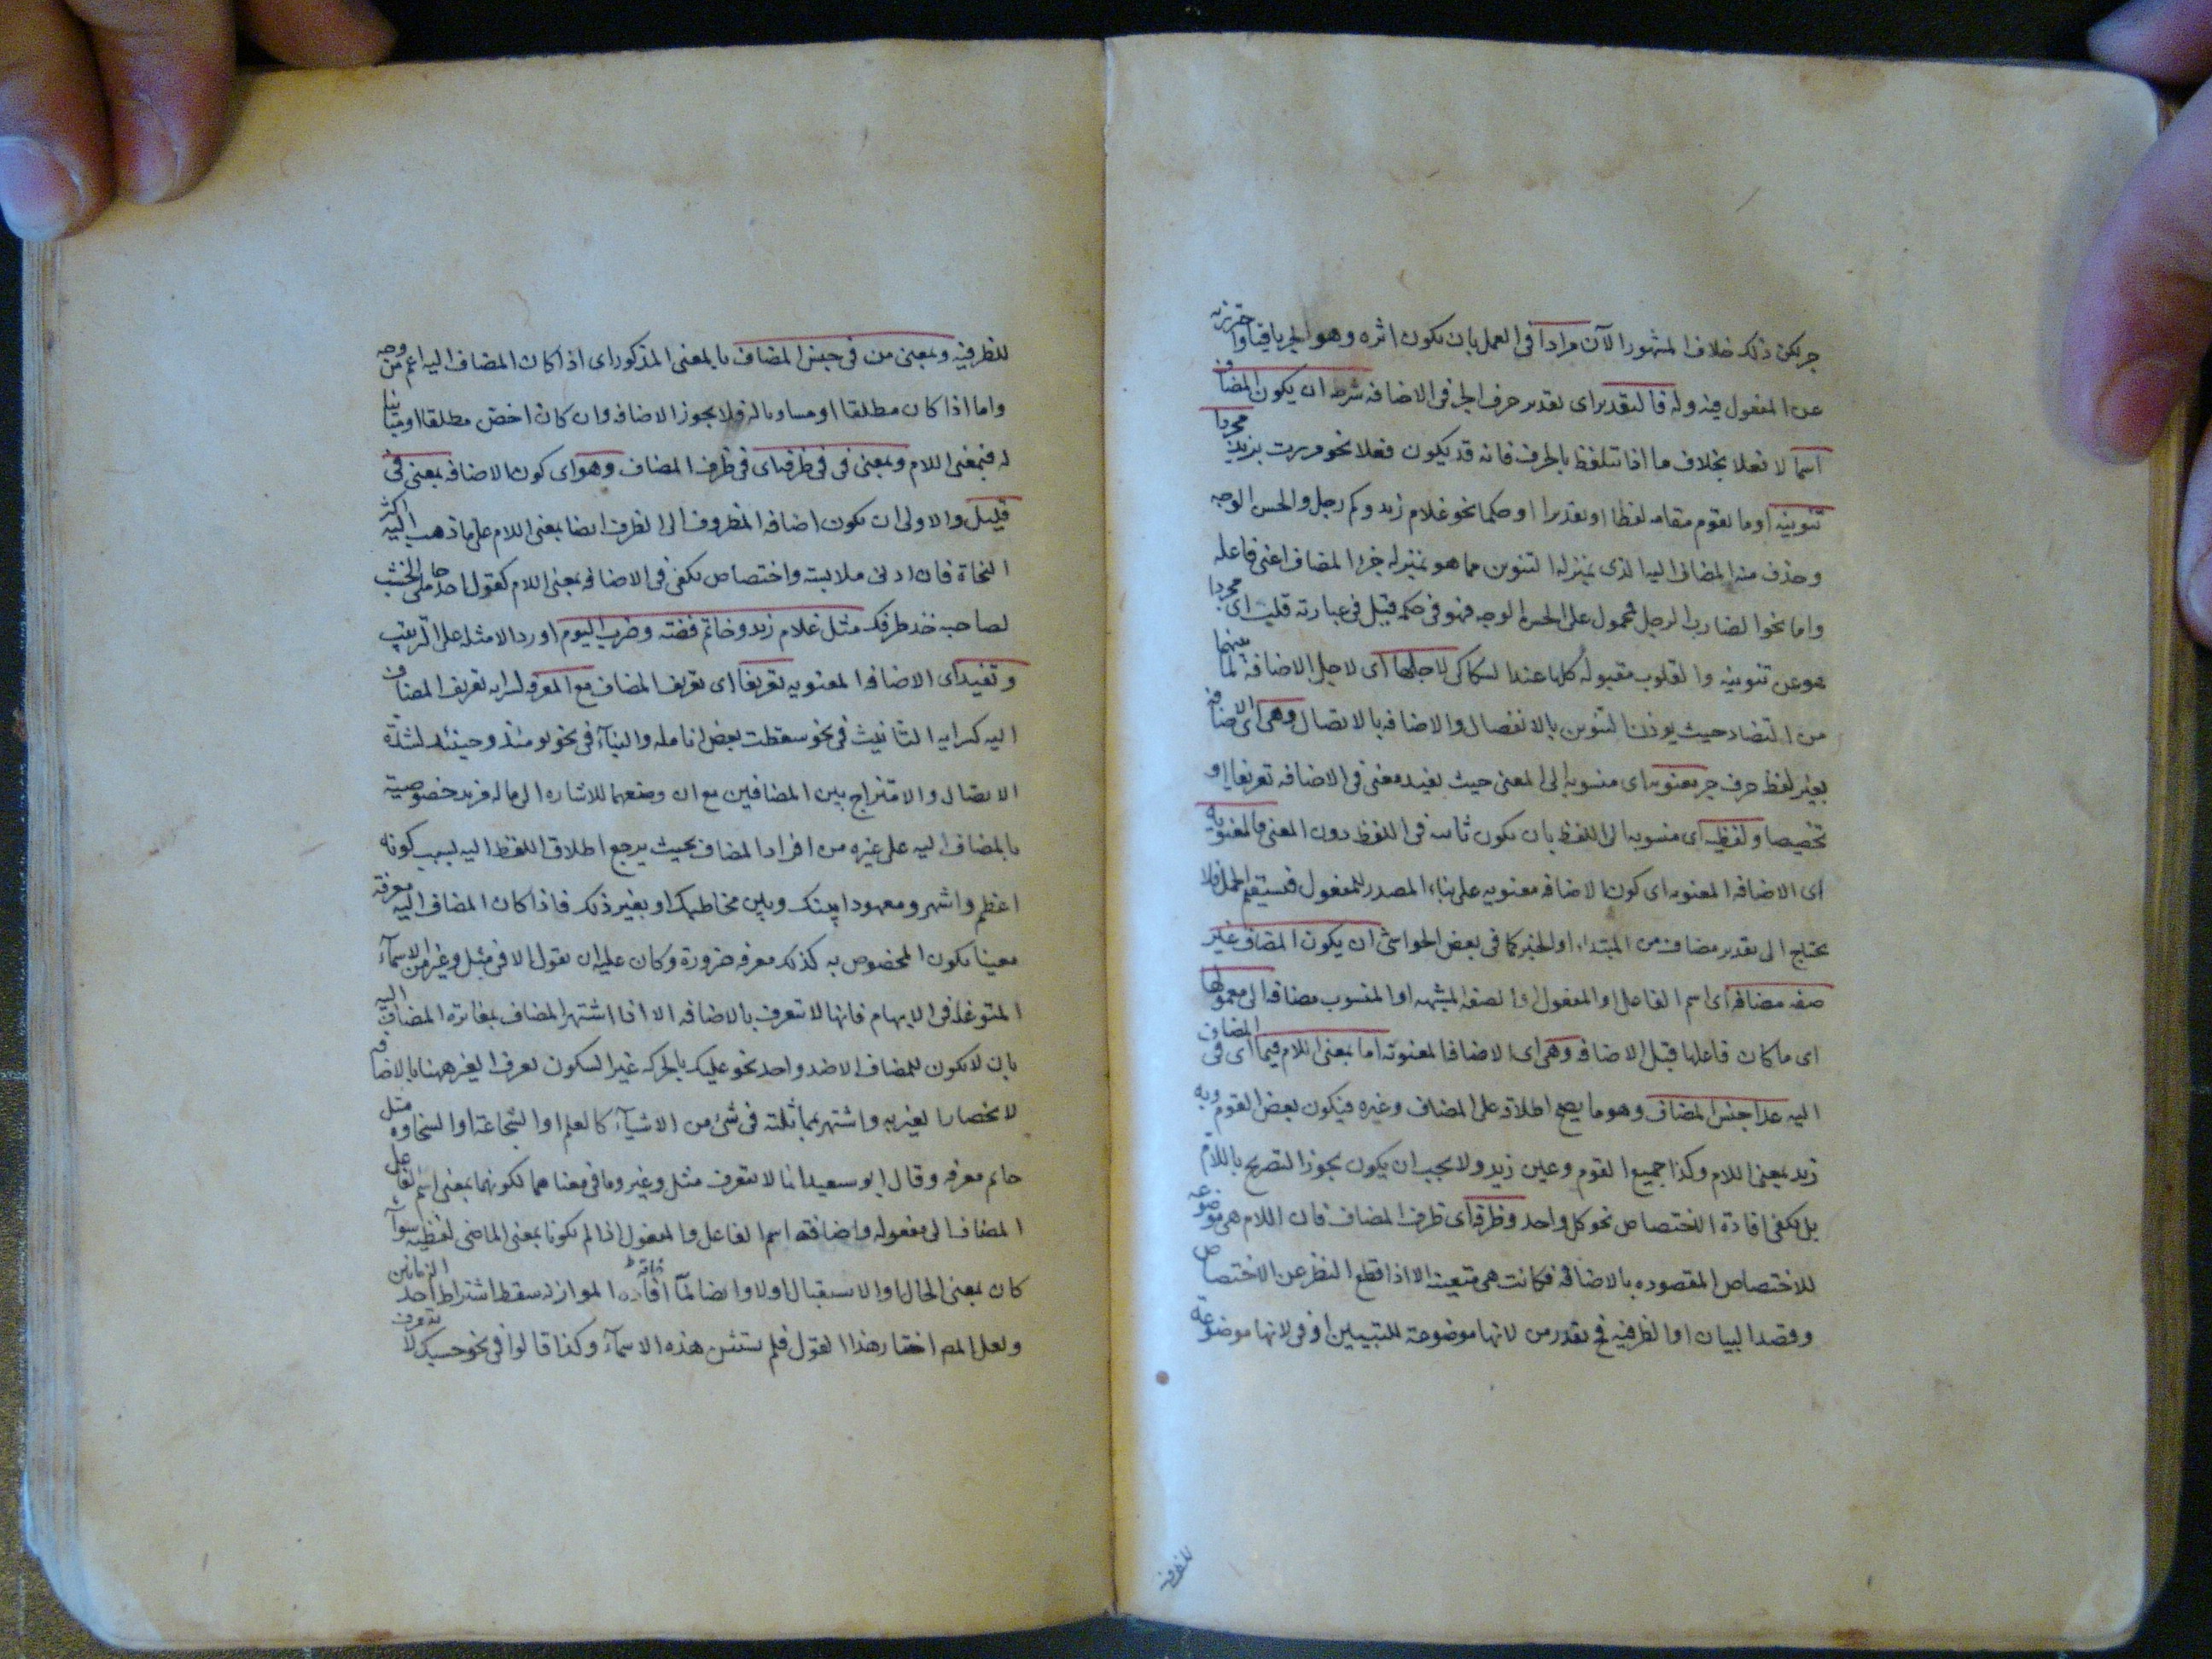 جر يكن ذلك خلاف المشهور الآن مرادا في العمل بان يكون اثره وهو الجر باقيا واحترز به
عن المفعول فيه وله فالتقدير اى تقدير حرف الجر في الاضافه شرطه ان يكون المضاف
اسما لا فعلا بخلاف ما اذا تلفظ بالحرف فانه قد يكون فعلا نحو مررت بزيد مجردا
تنوينه او ما يقوم مقامه لفظا او تقديرا او حكما نحو غلام زيد وكم رجل والحسن الوجه
وحذف منه المضاف اليه الذى بمنزله التنوين مما هو بمنزله جزء المضاف اعنى فاعله
واما نحو الضارب الرجل فمحمول على الحسن الوجه فهو في حكمه قيل في عبارته قلب اى مجردا
هو عن تنوينه والقلوب مقبوله كلها عند السكاكى لاجلها اى لاجل الاضافه لما بينهما
من التضاد حيث يوذن التنوين بالانفصال والاضافه بالاتصال وهى اى الاضافه
بغير لفظ حرف جر معنويه اى منسوبه الى المعنى حيث يفيد معنى في الاضافه تعريفا او
تخصيصا ولفظيه اى منسوبه الى اللفظ بان يكون ثابته في اللفظ دون المعنى فالمعنويه
اى الاضافه المعنويه اى كون الاضافه معنويه على بناء المصدر للمفعول فيستقيم الحمل فلا
يحتاج الى تقدير مضاف من المبتداء او الخبر كما في بعض الحواشى ان يكون المضاف غير
صفه مضافه اى اسم الفاعل او المفعول او الصفه المشبهه او المنسوب مضافه الى معمولها
اى ما كان فاعلها قبل الاضافه وهى اى الاضافه المعنويه اما بمعنى اللام فيما اى في المضاف
اليه عدا جنس المضاف وهو ما يصح اطلاقه على المضاف وغيره فيكون بعض القوم ويد
زيد بمعنى اللام وكذا جميع القوم وعين زيد ولا يجب ان يكون يجوز التصريح باللام
بل يكفى افادة الاختصاص نحو كل واحد وظرفه اى ظرف المضاف فان اللام هى موضوعه
للاختصاص المقصوده بالاضافه فكانت هى متعينه الا اذا قطع النظر عن الاختصاص
وقصد البيان او الظرفيه فح تقدر من لانها موضوعة للتبيين او في لانها موضوعة
للظرفيه
للظرفيه وبمعنى من في جنس المضاف بالمعنى المذكور اى اذا كان المضاف اليه اعم من وجه
واما اذا كان مطلقا او مساويا له فلا يجوز الاضافه وان كان اخص مطلقا او مباينا
له فبمعنى اللام وبمعنى في في ظرفه اى في ظرف المضاف وهو اى كون الاضافه بمعنى في
قليل والاولى ان يكون اضافه المظروف الى الظرف ايضا بمعنى اللام على ما ذهب اليه اكثر
النحاة فان ادنى ملابسته واختصاص يكفى في الاضافه بمعنى اللام كقول احد حاملى الخشب
لصاحبه خذ طرفك مثل غلام زيد وخاتم فضته وضرب اليوم اورد الامثله على الترتيب
وتفيد اى الاضافه المعنويه تعريفا اى تعريف المضاف مع المعرفه لسرايه تعريف المضاف
اليه كسرايه التانيث في نحو سقطت بعض انامله والبناء في نحو يومئذ وحينئذ لشدة
الاتصال والامتزاج بين المضافين مع ان وضعهما للاشاره الى ما له مزيد خصوصية
بالمضاف اليه على غيره من افراد المضاف بحيث يرجع اطلاق اللفظ اليه لسبب كونه
اعظم واشهر ومعهودا بينك وبين مخاطبك او بغير ذلك فاذا كان المضاف اليه معرفة
معينا يكون المخصوص به كذلك معرفه ضرورة وكان عليه ان يقول الا في مثل وغير من الاسماء
المتوغلة في الابهام فانها لا تتعرف بالاضافه الا اذا اشتهر المضاف بمغايرة المضاف اليه
بان لا يكون للمضاف الا ضد واحد نحو عليك بالحركه غير السكون تعرف الغير ههنا بالاضافه
لانحصار الغيريه واشتهر بمماثلته في شئ من الاشياء كالعلم او الشجاعة او السخاوه مثل
حاتم معرفه وقال ابو سعيد انما لا يتعرف مثل وغير وما في معناهما لكونهما بمعنى اسم الفاعل
المضاف الى مفعوله واضافه اسم الفاعل والمفعول اذا لم يكونا بمعنى الماضى لفظيه سواء
كان بمعنى الحال او الاستقبال اولا وايضا لما افاده الموازنه سقط اشتراط احد الزمانين
ولعل المص اختار هذا القول فلم يستثن هذه الاسماء وكذا قالوا في نحو حسبك لا يتعرف